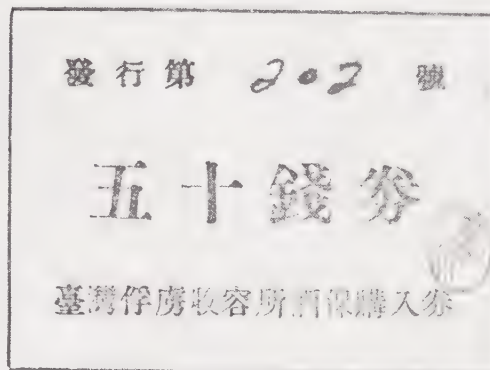 發行第 202 號
五十錢券
臺灣俘虜收容所酒保購入券